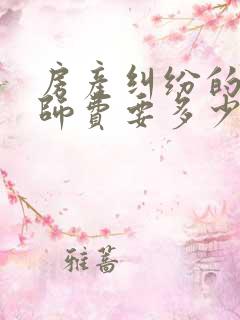 房産纠纷的
師費要多少
雅蔷